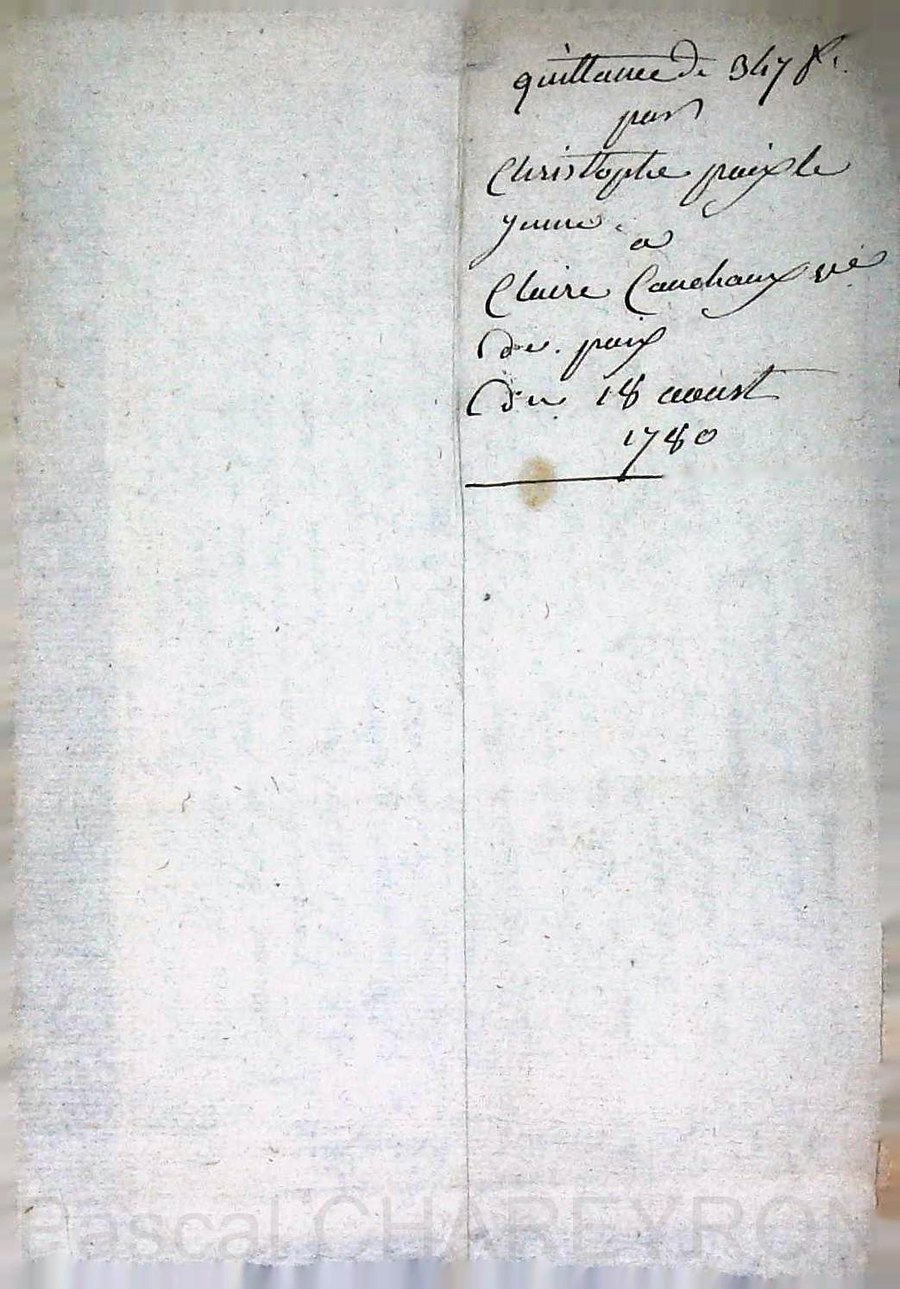 quittance de 347 #.
par
Christophe paix le
jeune. a
Claire Cauchaux vë
de. paix
du 18 aoust
1780
Pascal CHAREYRON